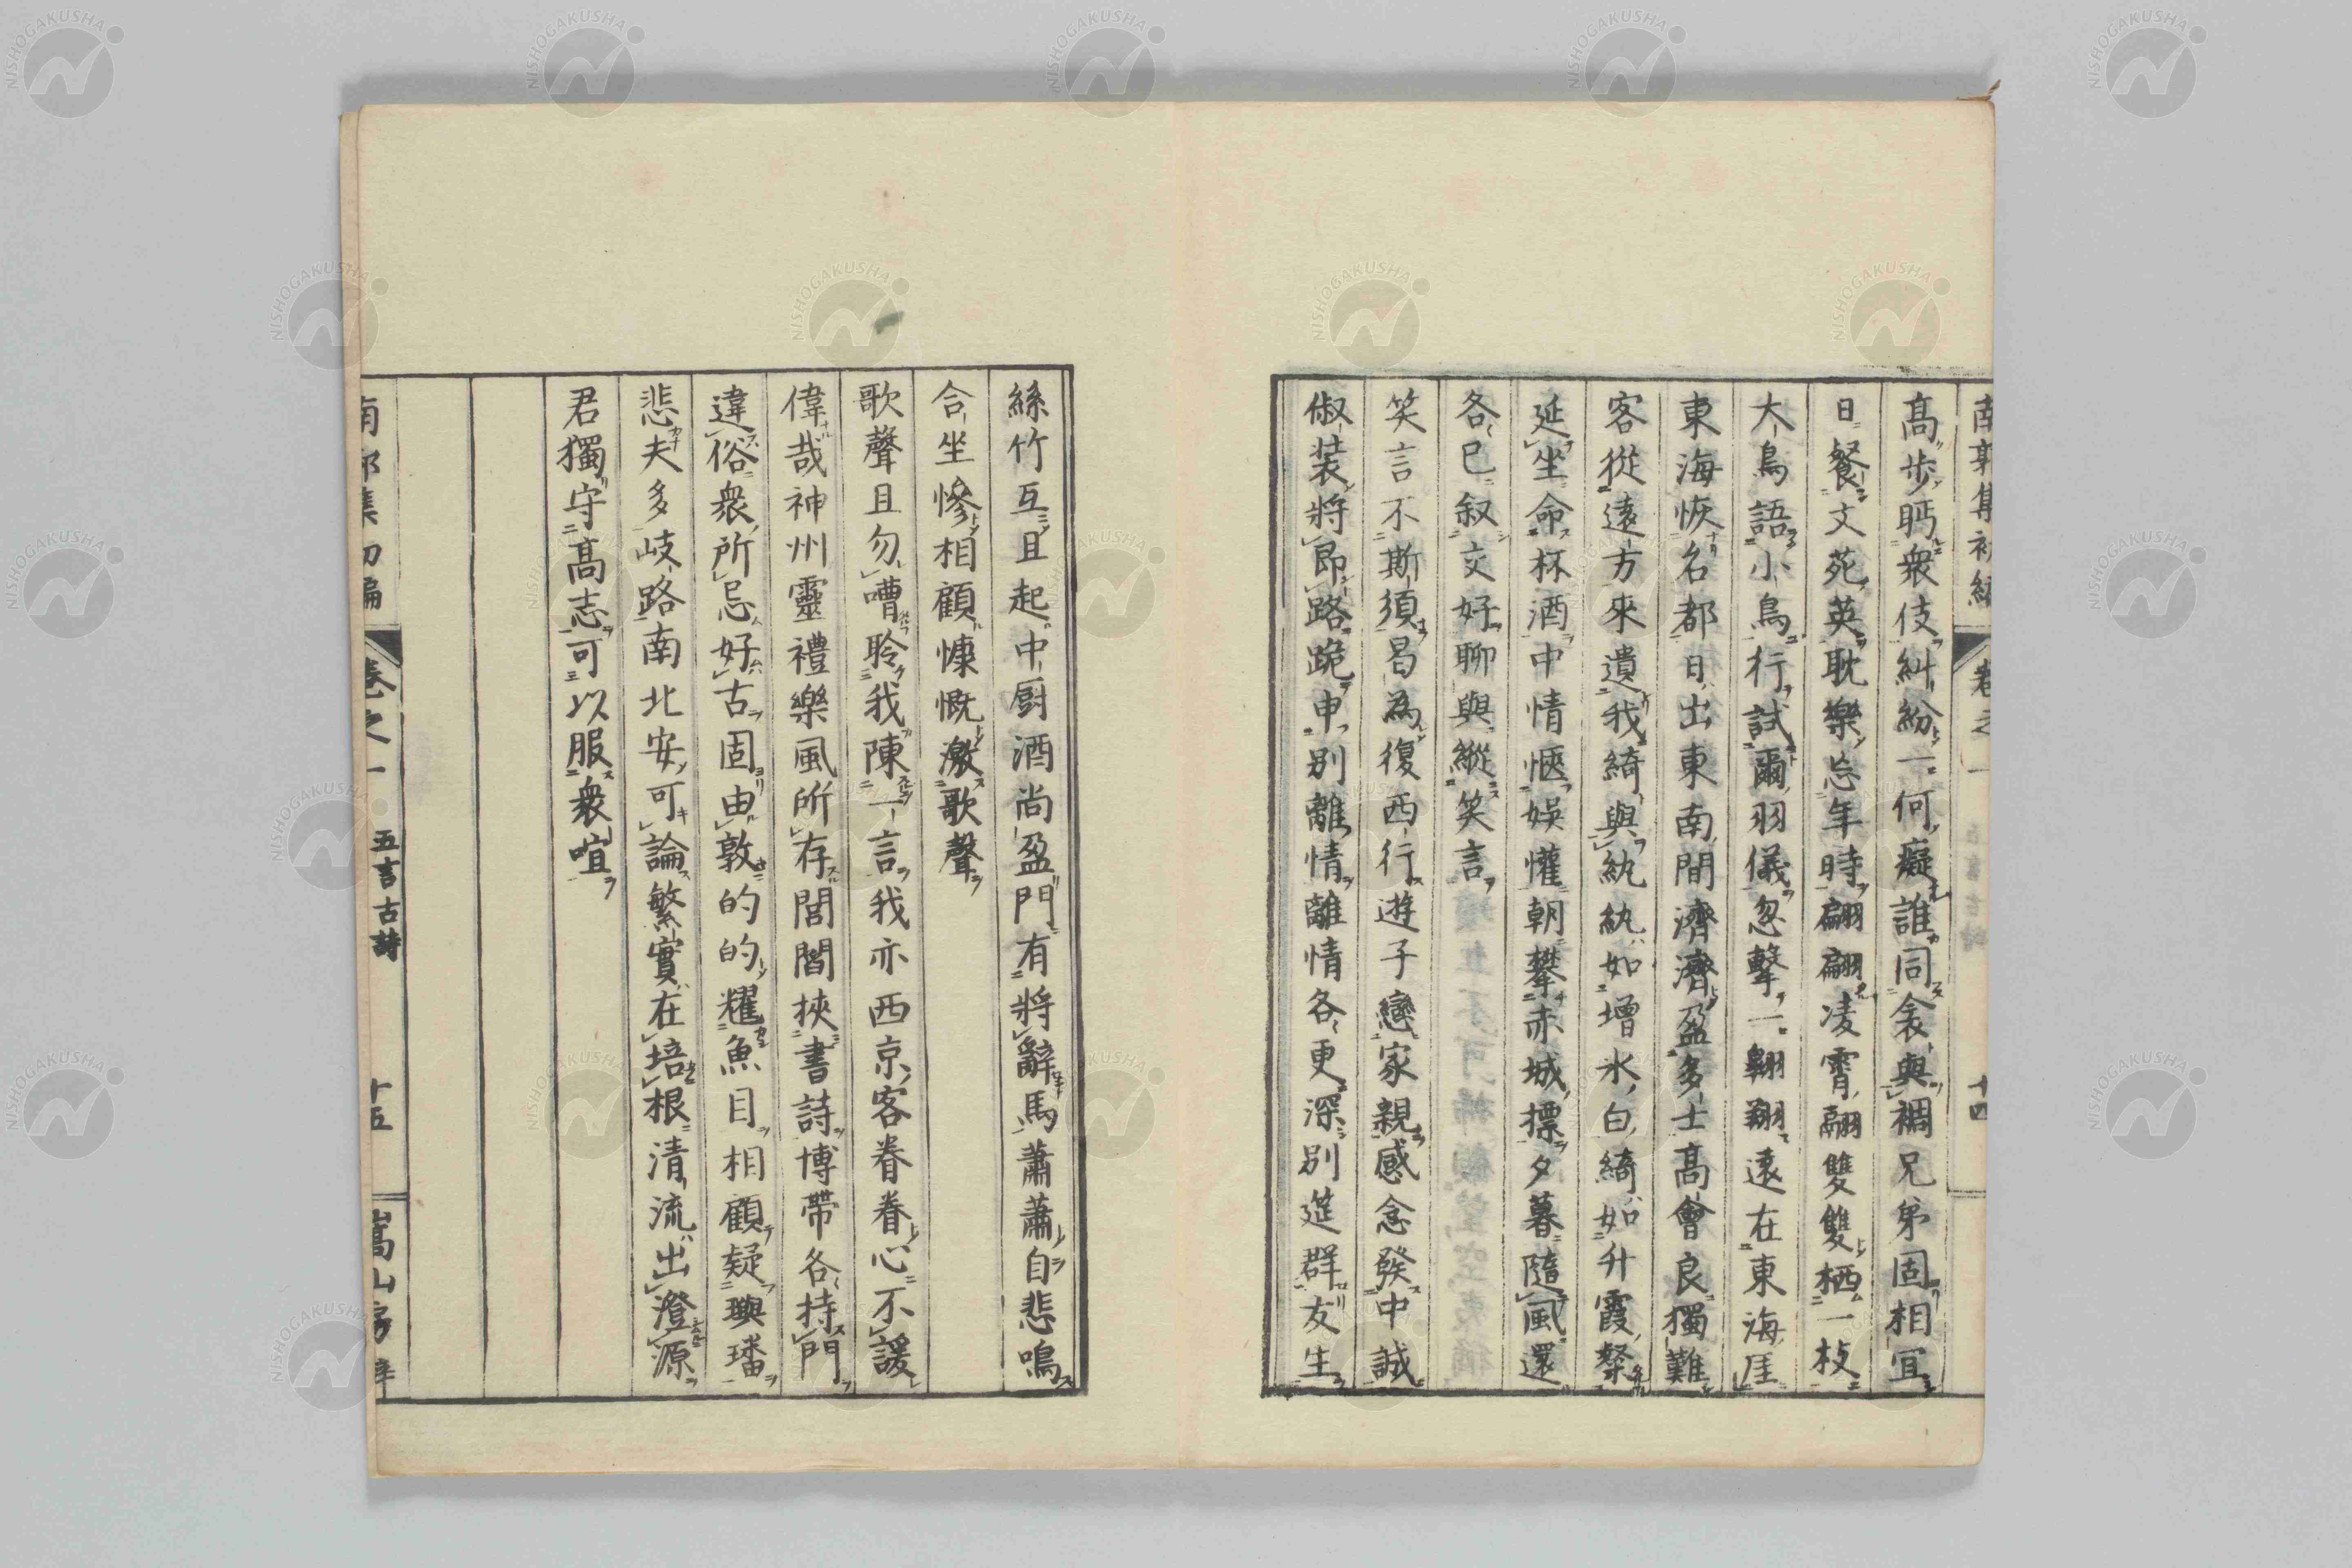 南郭集初編 卷之一 十四
高步眄衆伎糾紛一何癡誰同衾與裯兄弟固相宜
日餐文苑英耽樂忘年時翩翩凌霄翮雙雙栖一枝
大鳥語小鳥行試爾羽儀忽擊一翱翔遠在東海厓
東海恢名都日出東南間濟濟盈多士高會良獨難
客從遠方來遺我綺與紈紈如增氷白綺如升霞粲
延坐命杯酒中情愜娛懽朝攀赤城摽夕暮隨風還
各已叙文好聊與縱笑言
笑言不斯須曷為復西行遊子戀家親感念發中誠
俶装將即路跪申別離情離情各更深別筵群友生
絲竹互且起中厨酒尚盈門有將辭馬蕭蕭自悲鳴
合坐慘相顧慷慨激歌聲
歌聲且勿嘈聆我陳一言我亦西京客眷眷心不諼
偉哉神州靈禮樂風所存閭閻挾書詩博帶各持門
違俗衆所忌好古固由敦的的耀魚目相顧疑璵璠
悲夫多岐路南北安可論繁實在培根清流出澄源
君獨守高志可以服衆喧
南郭集初編 卷之一 五言古詩 十五 嵩山房梓
NISHOGAKUSHA